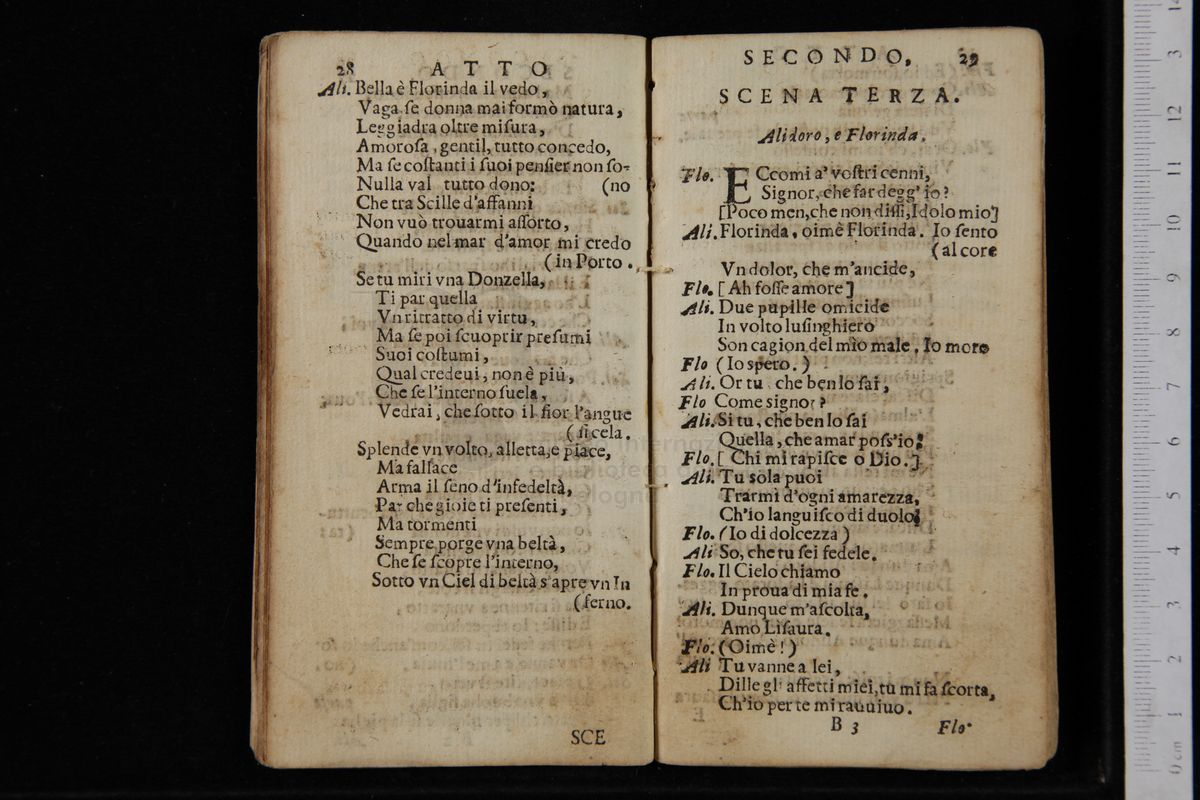 28 ATTO
Ali. Bella è Florinda il vedo,
Vaga se donna mai formò natura,
Leggiadra oltre misura,
Amorosa, gentil, tutto concedo,
Ma se costanti i suoi pensier non so-
Nulla val tutto dono: (no
Che tra Scille d'affanni
Non vuò trouarmi assorto,
Quando nel mar d'amor mi credo
(in Porto.
Se tu miri vna Donzella,
Ti par quella
Vn ritratto di virtu,
Ma se poi scuoprir presumi
Suoi costumi,
Qual credeui, non è più,
Che se l'interno suela,
Vedrai, che sotto il fior l'angue
(si cela.
Splende vn volto, alletta, e piace,
Ma fallace
Arma il seno d'infedeltà,
Par che gioie ti presenti,
Ma tormenti
Sempre porge vna beltà,
Che se scopre l'interno,
Sotto vn Ciel di beltà s'apre vn In
(ferno.
SCE
SECONDO. 29
SCENA TERZA.
Alidoro, e Florinda.
Flo. Eccomi a' vostri cenni,
Signor, che far degg' io?
[Poco men, che non dissi, Idolo mio]
Ali. Florinda, oimè Florinda. Io sento
(al core
Vn dolor, che m'ancide,
Flo. [Ah fosse amore]
Ali. Due pupille omicide
In volto lusinghiero
Son cagion del mio male, Io moro
Flo (Io spero.)
Ali. Or tu che ben lo sai,
Flo Come signor?
Ali. Si tu, che ben lo sai
Quella, che amar poss'io!
Flo. [Chi mi rapisce o Dio.]
Ali. Tu sola puoi
Trarmi d'ogni amarezza,
Ch'io languisco di duolo;
Flo. (Io di dolcezza)
Ali So, che tu sei fedele.
Flo. Il Cielo chiamo
In proua di mia fe.
Ali. Dunque m'ascolta,
Amo Lisaura.
Flo. (Oimè!)
Ali Tu vanne a lei,
Dille gli affetti miei, tu mi fa scorta,
Ch'io per te mi rauuiuo.
B 3 Flo.